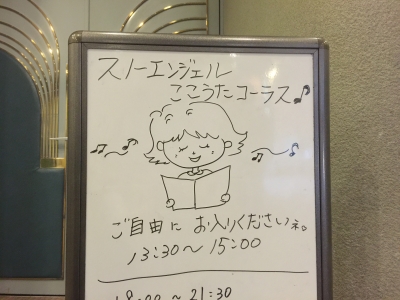 スノーエンジェル
ここうたコーラス♪
ご自由に お入りくださいネ。
13:30～15:00
18:00～21:30